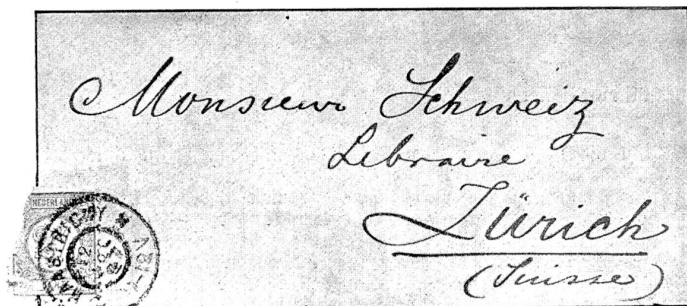 Monsieur Schweiz
Libraire
Zürich
(Suisse)
NEDERLAND